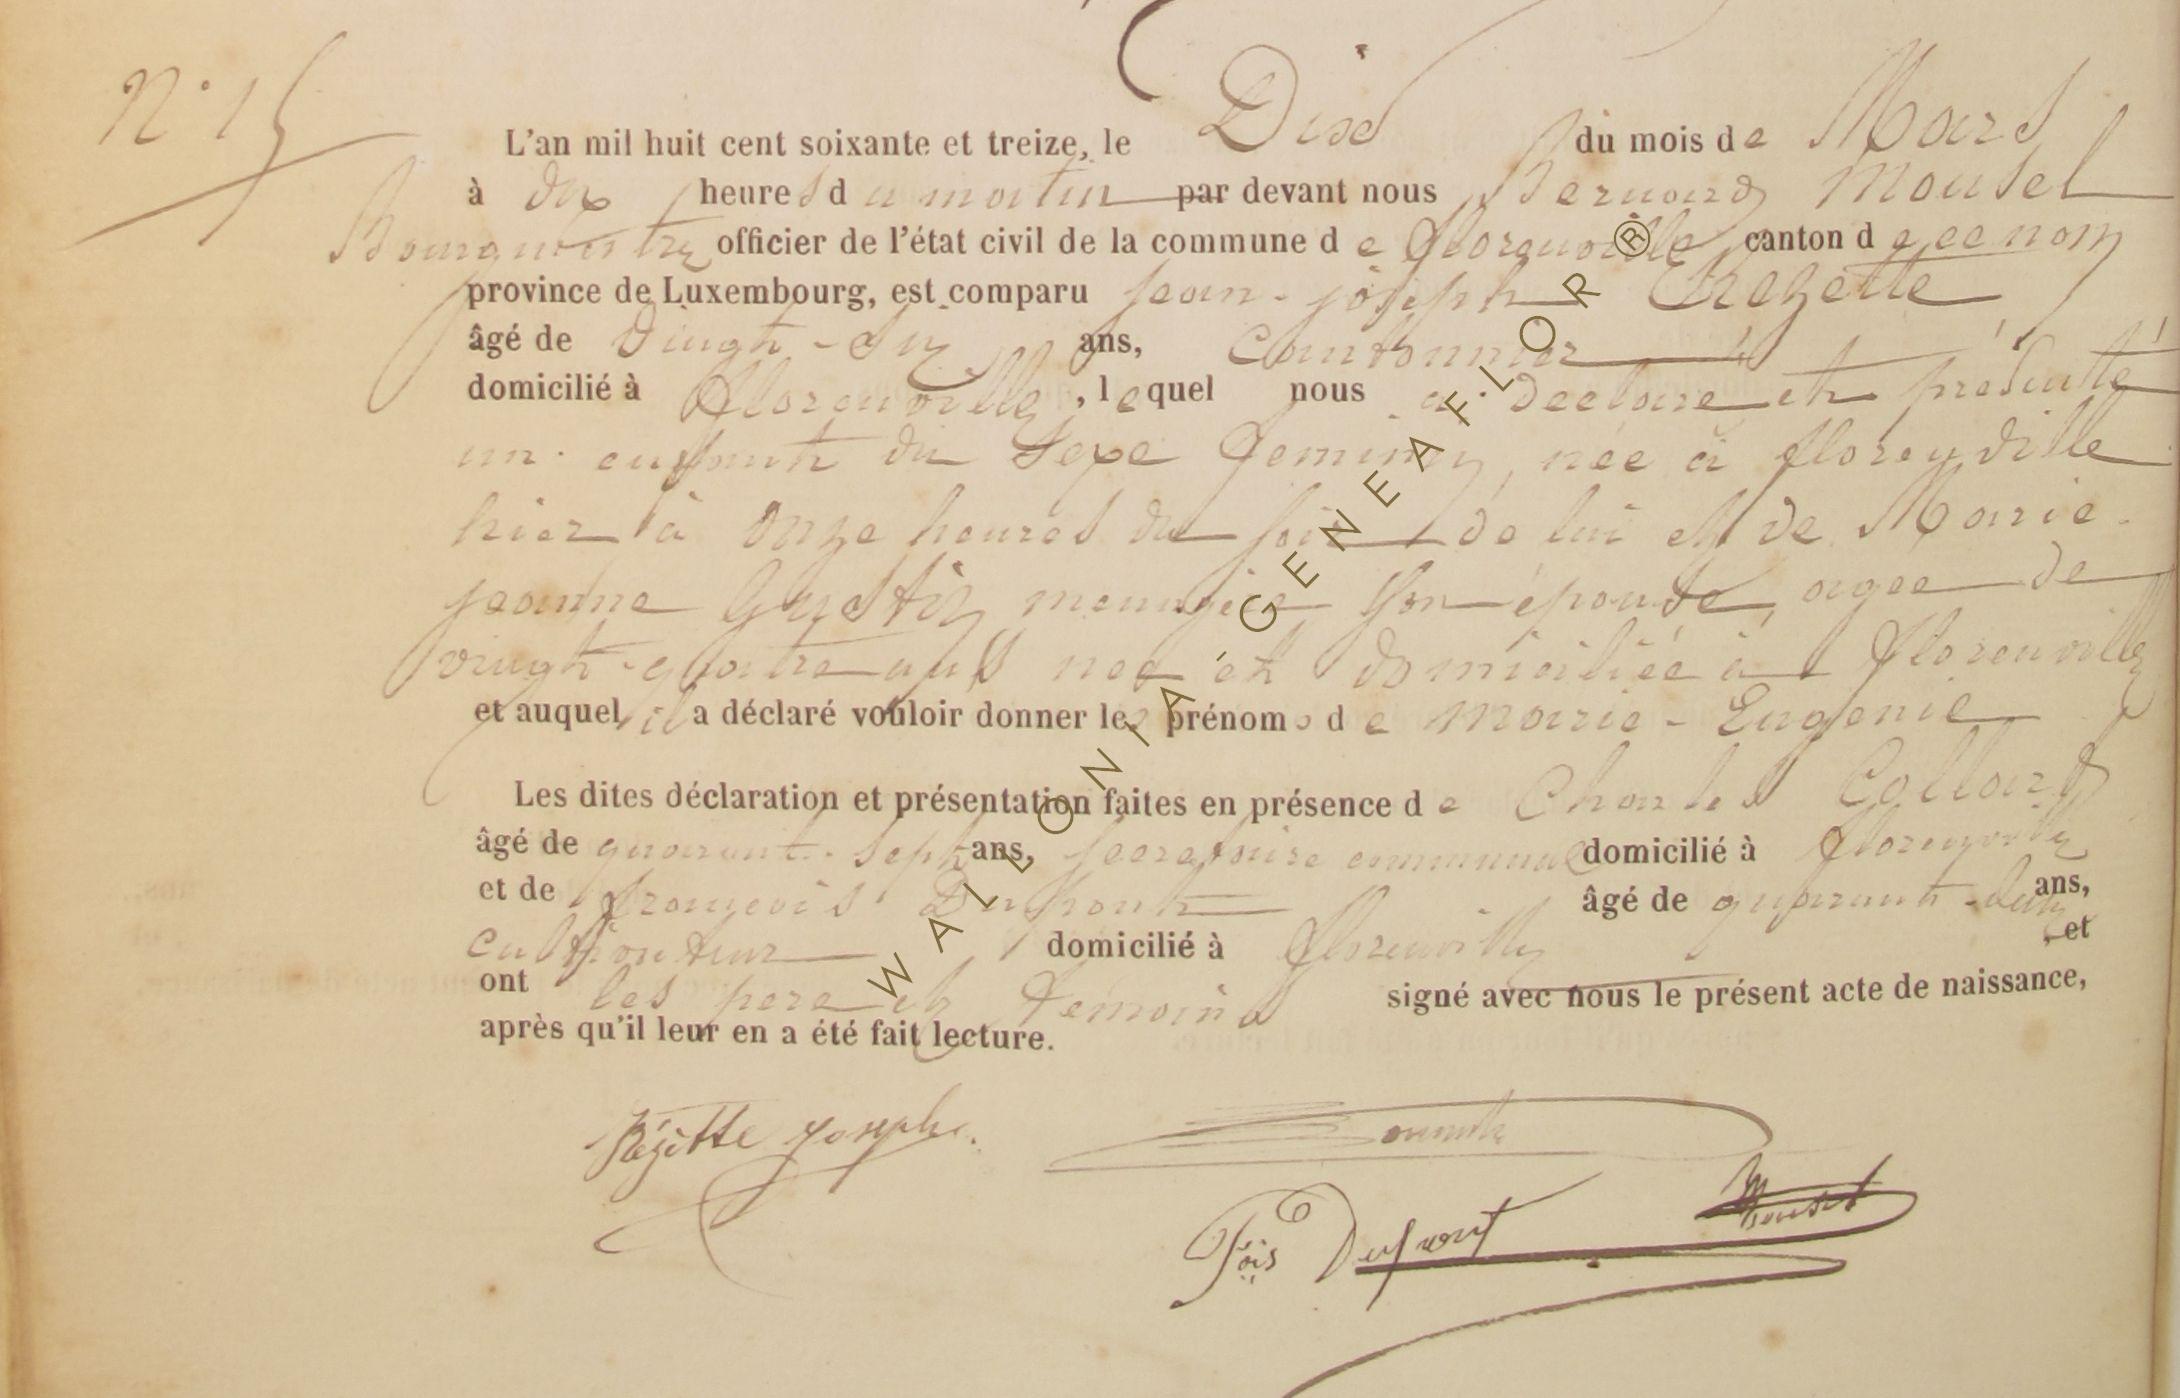 N° 15
L'an mil huit cent soixante et treize, le Dix du mois de Mars
à dix heures du matin par devant nous Bernard Mousel
Bourgmestre officier de l'état civil de la commune de florenville canton de ce nom
province de Luxembourg, est comparu jean-joseph Rezette
âgé de vingt-six ans, Cantonnier
domicilié à florenville, lequel nous a déclaré et présenté
un enfant du sexe feminin, née à florenville
hier à onze heures du soir de lui et de Marie-
jeanne Gustin menagère son épouse, agée de
vingt-quatre ans née et domiciliée à florenville
et auquel il a déclaré vouloir donner les prénoms de Marie-Eugenie
Les dites déclaration et présentation faites en présence de Charles Collard
âgé de quarante-sept ans, secretaire communal domicilié à florenville
et de françois Dupont âgé de quarante-deux ans,
cultivateur domicilié à florenville, et
ont les pere et témoins signé avec nous le présent acte de naissance,
après qu'il leur en a été fait lecture.
Rézette joseph.
Fois Dupont Mousel
WALLONIA-GENEAFLOR ®